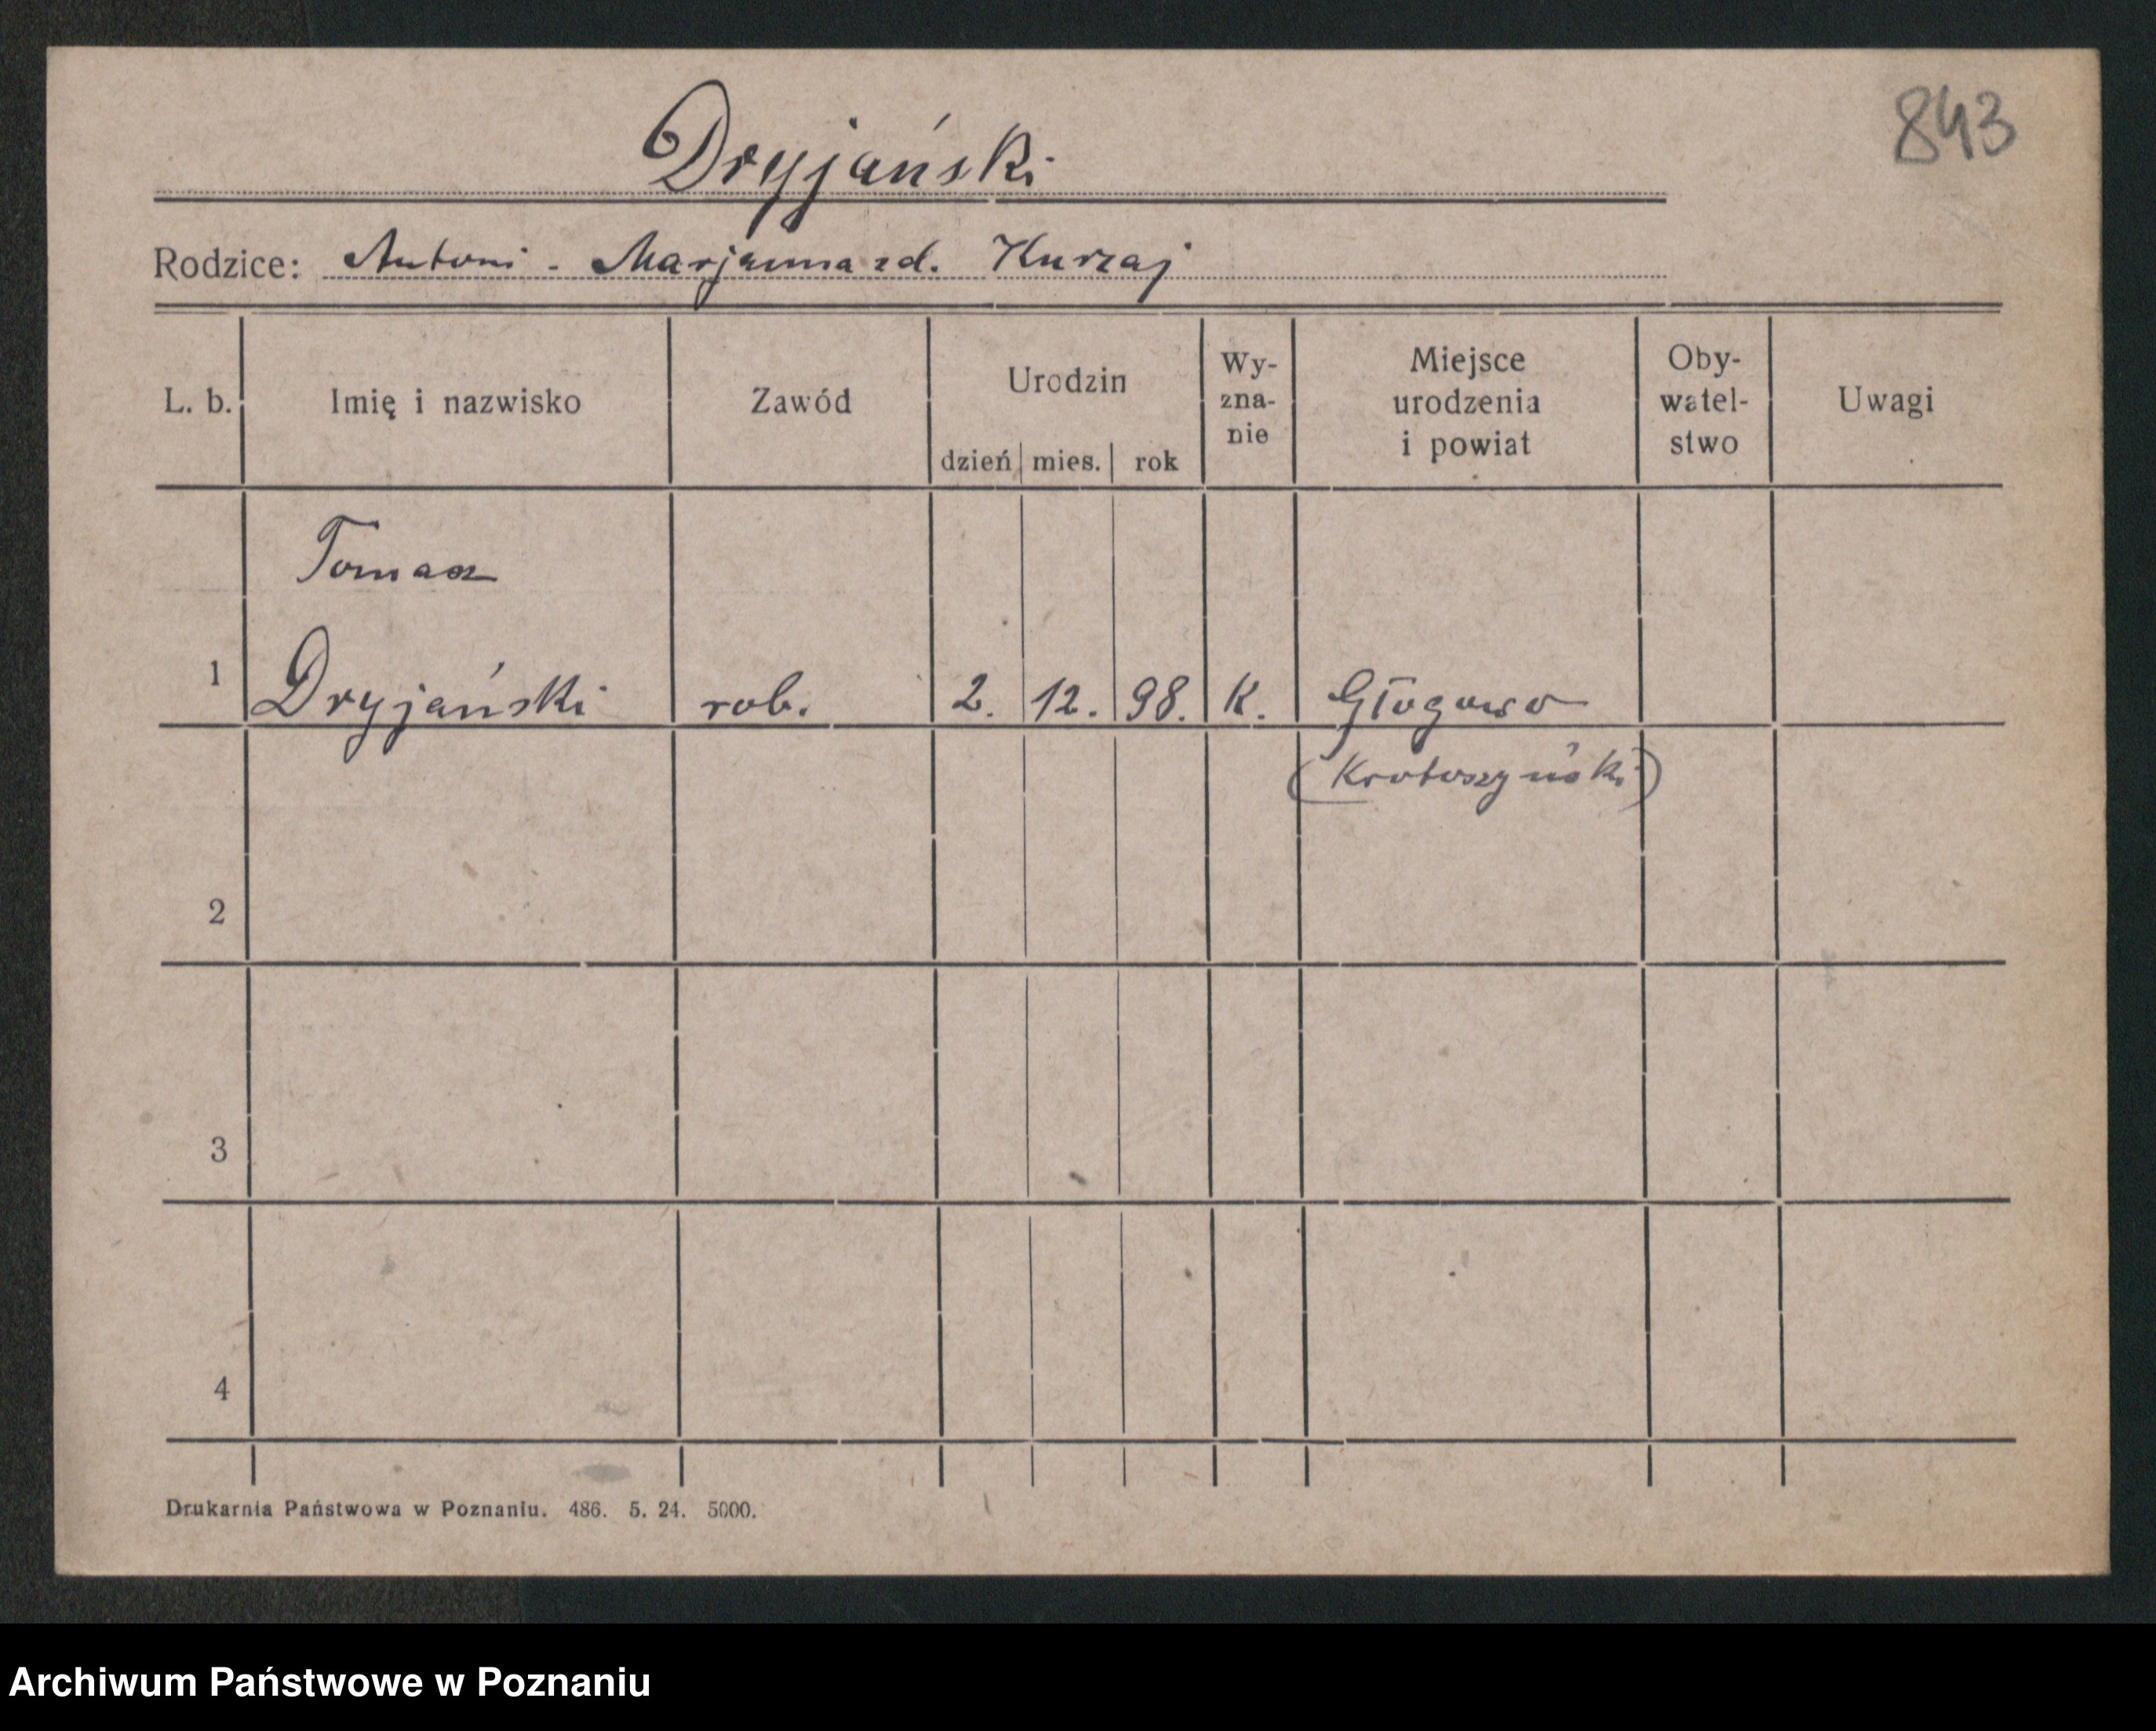 843
Dryjański
Rodzice: Antoni - Marjanna zd. Kurzaj
L. b. Imię i nazwisko Zawód Urodzin dzień mies. rok Wy-zna-nie Miejsce urodzenia i powiat Oby-watel-stwo Uwagi
Tomasz
1 Dryjański rob. 2. 12. 98. K. Głogowo
(Krotoszyński)
2
3
4
Drukarnia Państwowa w Poznaniu. 486. 5. 24. 5000.
Archiwum Państwowe w Poznaniu